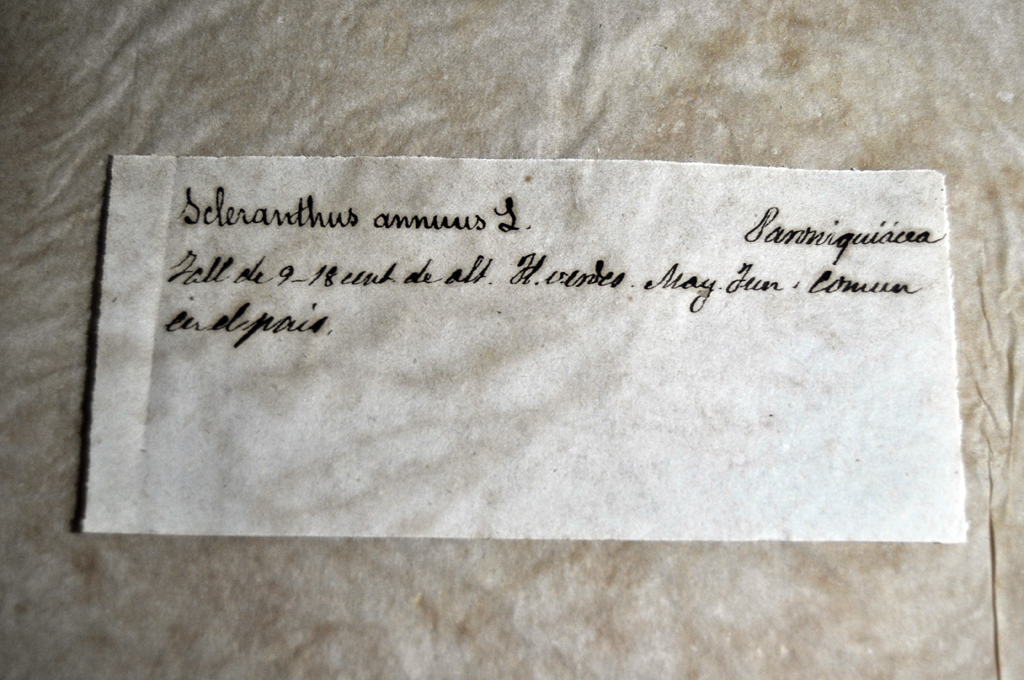 Scleranthus annuus L. Paroniquiácea
Tall de 9-18 cent. de alt. Fl. verdes. May. Jun. Comun
en el pais.